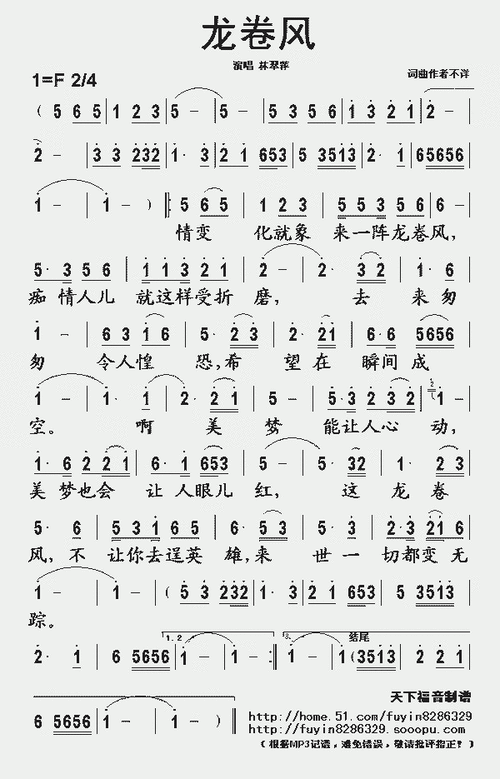 龙卷风
演唱 林翠萍
1=F 2/4
词曲作者不详
( 5 6 5 | 1 2 3 | 5 - | 5 - | 5 3 5 | 5 3 2 1 | 2 -
2 - | 3 3 232 | 1· 3 | 2 1 653 | 5 3513 | 2· 1 | 65656
1 - | 1 - ) |: 5 6 5 | 1 2 3 | 5 5 3 5 | 5 -
情变 化就象 来一阵龙卷风,
5· 3 5 6 | 1 1 3 2 1 | 2 - | 2· 3 2 | 1· 6
痴 情人儿 就这样受折 磨, 去 来匆
1 - | 6 3 1 6 | 5· 2 3 | 2· 21 | 6 5656
匆 令人惶 恐,希 望在 瞬间成
1 - | 1 - | 2· 2 1 | 5 - | 5·3 2 3 2 | 1 -
空。 啊 美 梦 能让人心 动,
1· 6 2 2 1 | 6· 1 653 | 5 - | 5· 32 | 1· 2 3
美 梦也会 让 人眼儿 红, 这 龙 卷
5· 6 | 5 3 1 6 5 | 6· 5 3 | 5· 3 | 2·3 21 6
风,不 让你去逞英 雄,来 世一 切都变无
1 - | 1 - | ( 5· 3 | 2 3 232 | 1· 3 | 2 1 653 | 5 3513
踪。
1. 2. 3. 结尾
2· 1 | 6 5656 | 1 - | 1 - :| 1 - | 1 (3513 | 2 2 1
6 5656 | 1 - | 1 - ) ‖
天下福音制谱
http://home.51.com/fuyin8286329
http://fuyin8286329.sooopu.com
( 根据MP3记谱,难免错误,敬请批评指正? )